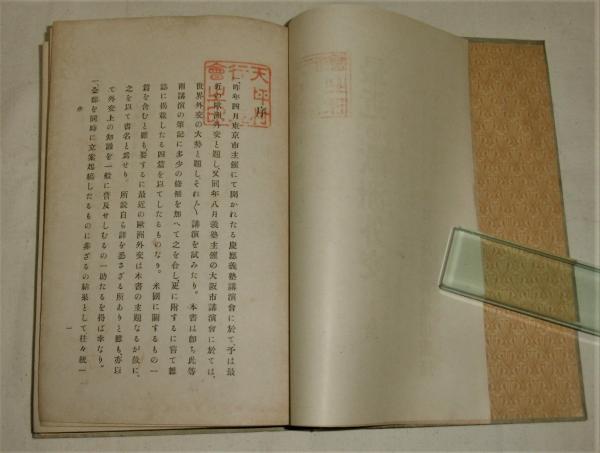 序
一、昨年四月東京市主催にて開かれたる慶應義塾講演會に於て、予は最
近の歐洲外交と題し、又同年八月義塾主催の大阪市講演會に於ては、
世界外交の大勢と題し、それ〲講演を試みたり。本書は即ち此等
兩講演の筆記に多少の修補を加へて之を合し、更に附するに嘗て雜
誌に掲載したる四篇を以てしたるものなり。米國に關するもの一
篇を含むと雖も、要するに最近の歐洲外交は本書の主題なるが故に、
之を以て書名と爲せり。所說自ら詳を悉さざる所ありと雖も、亦以
て外交上の知識を一般に普及せしむるの一助たるを得ば幸なり。
一、全部を同時に立案起稿したるものに非ざるの結果として往々統一
序
一